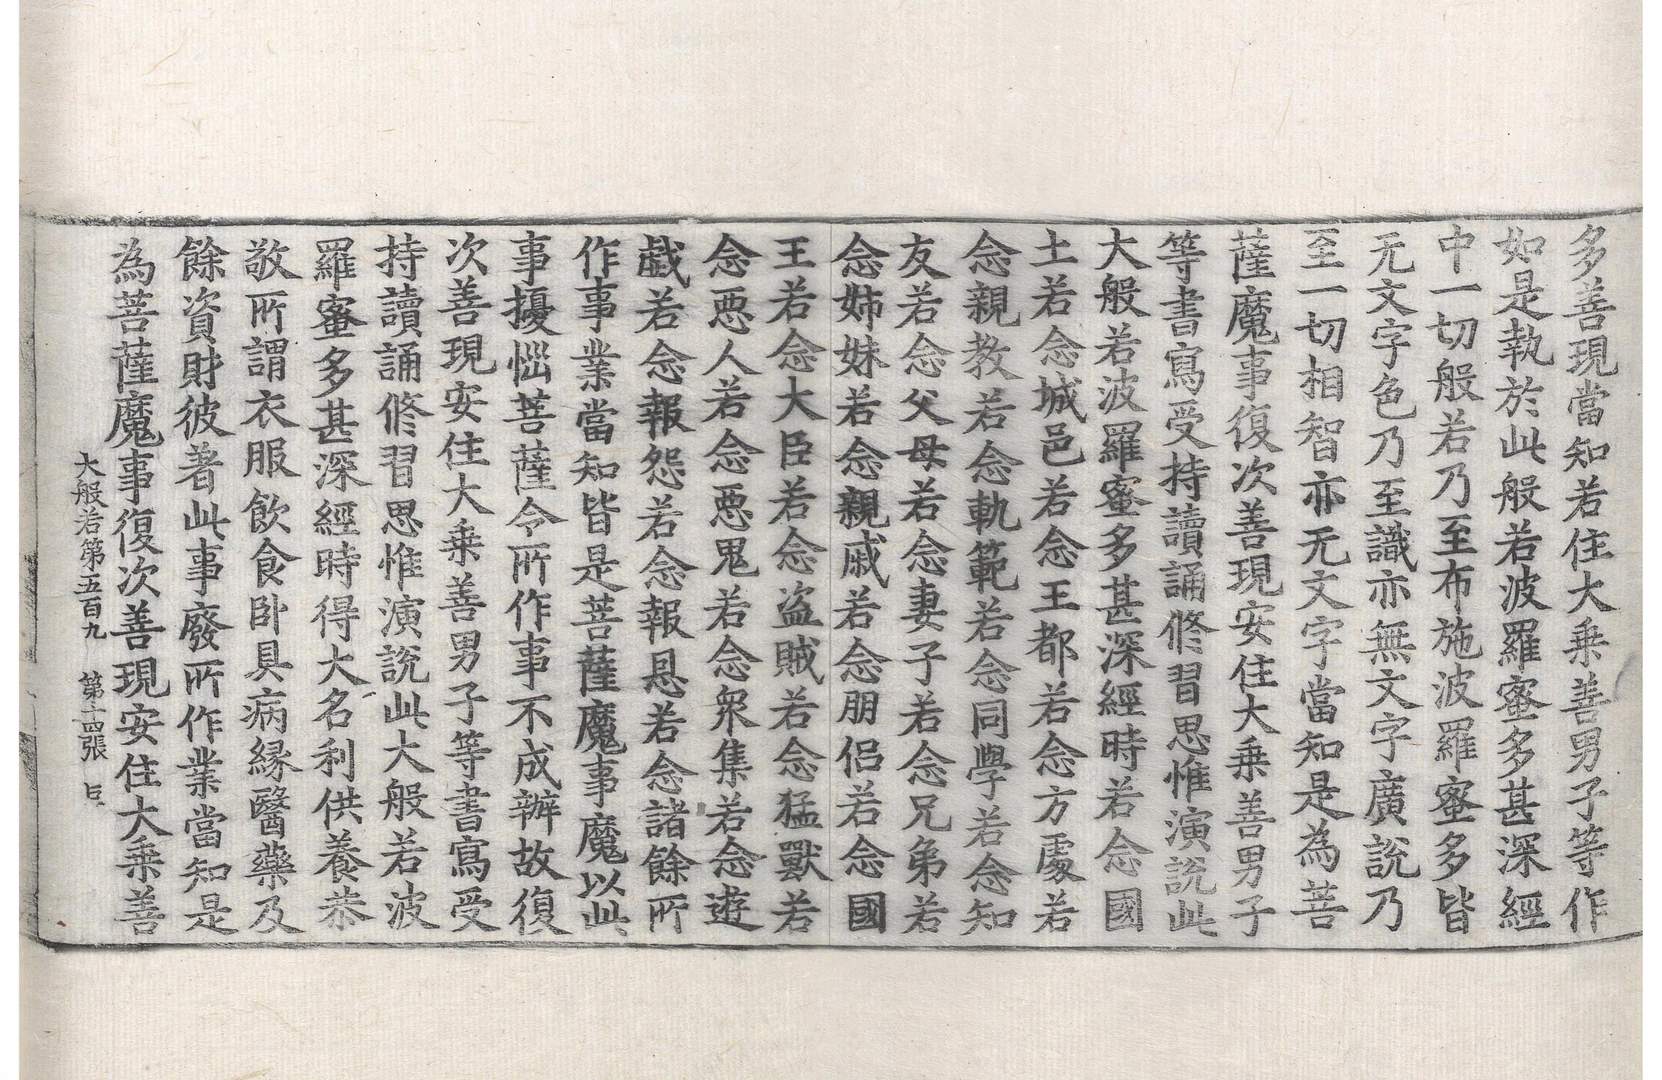 多善現當知若住大乗善男子等作
如是執於此般若波羅蜜多甚深經
中一切般若乃至布施波羅蜜多皆
无文字色乃至識亦無文字廣說乃
至一切相智亦无文字當知是為菩
薩魔事復次善現安住大乗善男子
等書寫受持讀誦修習思惟演說此
大般若波羅蜜多甚深經時若念國
土若念城邑若念王都若念方處若
念親教若念軌範若念同學若念知
友若念父母若念妻子若念兄弟若
念姉妹若念親戚若念朋侣若念國
王若念大臣若念盗賊若念猛獸若
念惡人若念惡鬼若念衆集若念遊
戯若念報怨若念報恩若念諸餘所
作事業當知皆是菩薩魔事魔以此
事擾惱菩薩令所作事不成辦故復
次善現安住大乗善男子等書寫受
持讀誦修習思惟演說此大般若波
羅蜜多甚深經時得大名利供養恭
敬所謂衣服飲食卧具病縁醫藥及
餘資財彼著此事廢所作業當知是
為菩薩魔事復次善現安住大乗善
大般若第五百九　第十四張